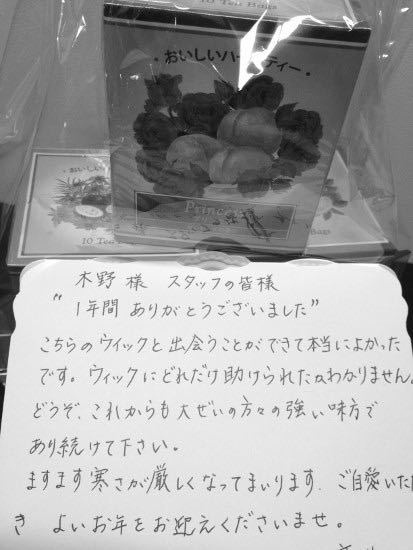 10 Tea Bags
・おいしいハーブティー・
おいしい
Princ
10 Te
Bags
木野様 スタッフの皆様
“1年間 ありがとうございました”
こちらのウイックと出会うことができて本当によかった
です。ウィックにどれだけ助けられたかわかりません。
どうぞ、これからも大ぜいの方々の強い味方で
あり続けて下さい。
ますます寒さが厳しくなってまいります、ご自愛いただ
き よいお年をお迎えくださいませ。